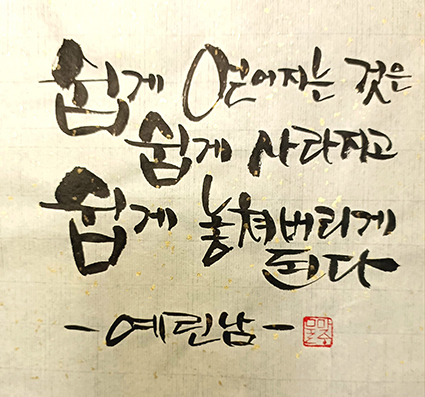 쉽게 얻어지는 것은
쉽게 사라지고
쉽게 놓쳐버리게
된다
-예린남-